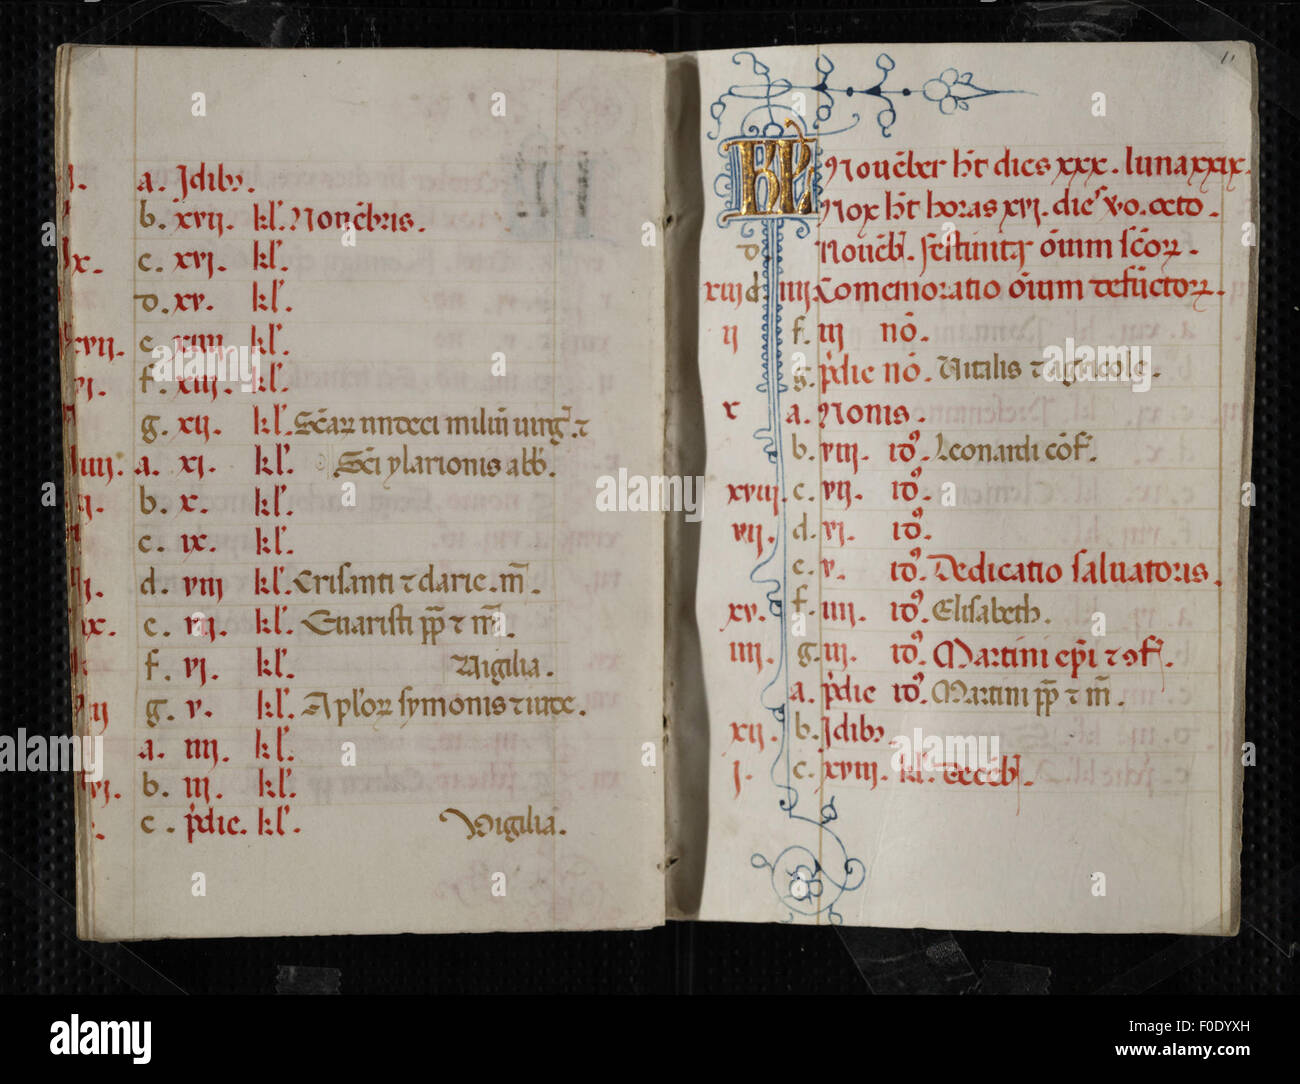 a. Jdibꝰ.
b. xvii. kl'. Nouēbris.
x. c. xvi. kl'.
d. xv. kl'.
xvii. e. xiiii. kl'.
vi. f. xiii. kl'.
g. xii. kl'. Sc̄aꝝ undeci miliū uirgꝭ. ⁊
iiii. a. xi. kl'. Sc̄i ylarionis abb̄.
b. x. kl'.
c. ix. kl'.
d. viii kl'. Crisanti ⁊ darie. m̄.
e. vii. kl'. Euaristi pp̄ ⁊ m̄.
f. vi. kl'. Uigilia.
g. v. kl'. Aplōꝝ symonis ⁊ iude.
a. iiii. kl'.
b. iii. kl'.
c. p'die. kl'. Vigilia.
11
KL Nouēber ht̄ dies xxx. luna xxix.
Nox ht̄ horas xvi. dieſ v̄o. octo.
d. Nouēb. festiuitꝭ oīum sc̄oꝝ.
xiii d. iiii Comemoratio oīum defūctoꝝ.
ii f. iii nō.
g. p'die nō. Uitalis ⁊ agricole.
x a. Nonis.
b. viii. idꝰ. Leonardi cōf.
xviii c. vii. idꝰ.
vii. d. vi. idꝰ.
e. v. idꝰ. Dedicatio saluatoris.
xv. f. iiii. idꝰ. Elisabeth.
iiii. g. iii. idꝰ. Martini ep̄i ⁊ ꝯf.
a. p'die idꝰ. Martini pp̄ ⁊ m̄.
xii. b. Jdibꝰ.
i. c. xviii. kl'. decēb.
a alamy stock photo
alamy
Image ID: F0DYXH
www.alamy.com